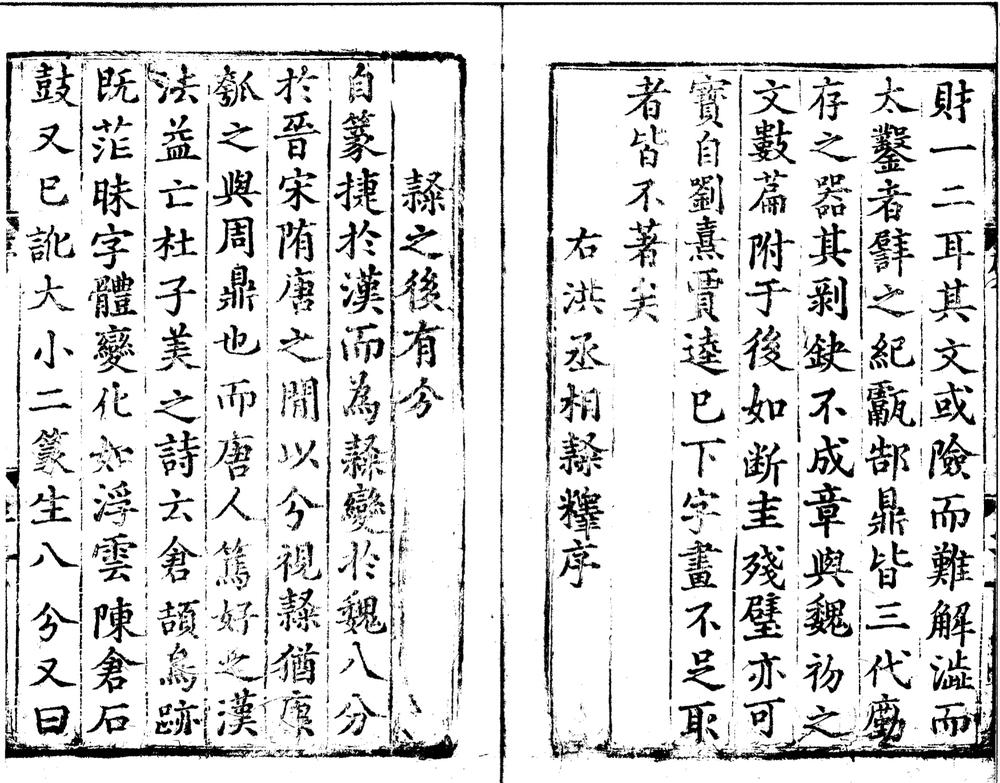 財一二耳其文或險而難解澁而
太鑿者譬之紀甗郜鼎皆三代廑
存之器其剥缺不成章與魏初之
文數篇附于後如断圭殘璧亦可
寶自劉熹賈逵已下字畫不足取
者皆不著矣
右洪丞相隸釋序
隸之後有分
自篆捷於漢而為隸變於魏八分
於晉宋隋唐之間以分視隸猶康
瓠之與周鼎也而唐人篤好之漢
法益亡杜子美之詩云倉頡鳥跡
既茫昧字體變化如浮雲陳倉石
鼓又已訛大小二篆生八分又曰